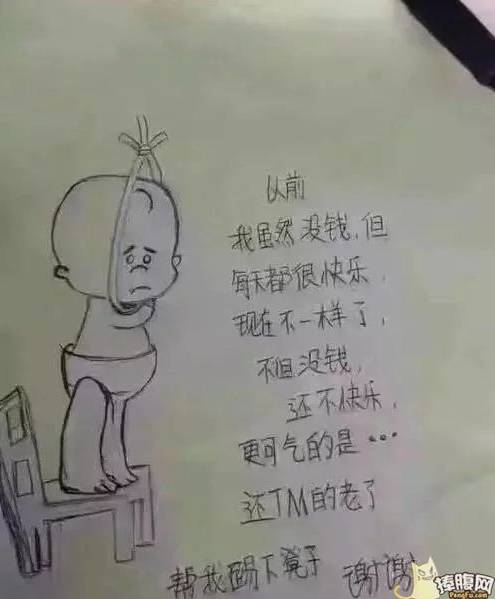 以前
我虽然没钱,但
每天都很快乐,
现在不一样了,
不但没钱,
还不快乐,
更可气的是...
还TM的老了
帮我踢下凳子 谢谢
捧腹网
PengFu.com